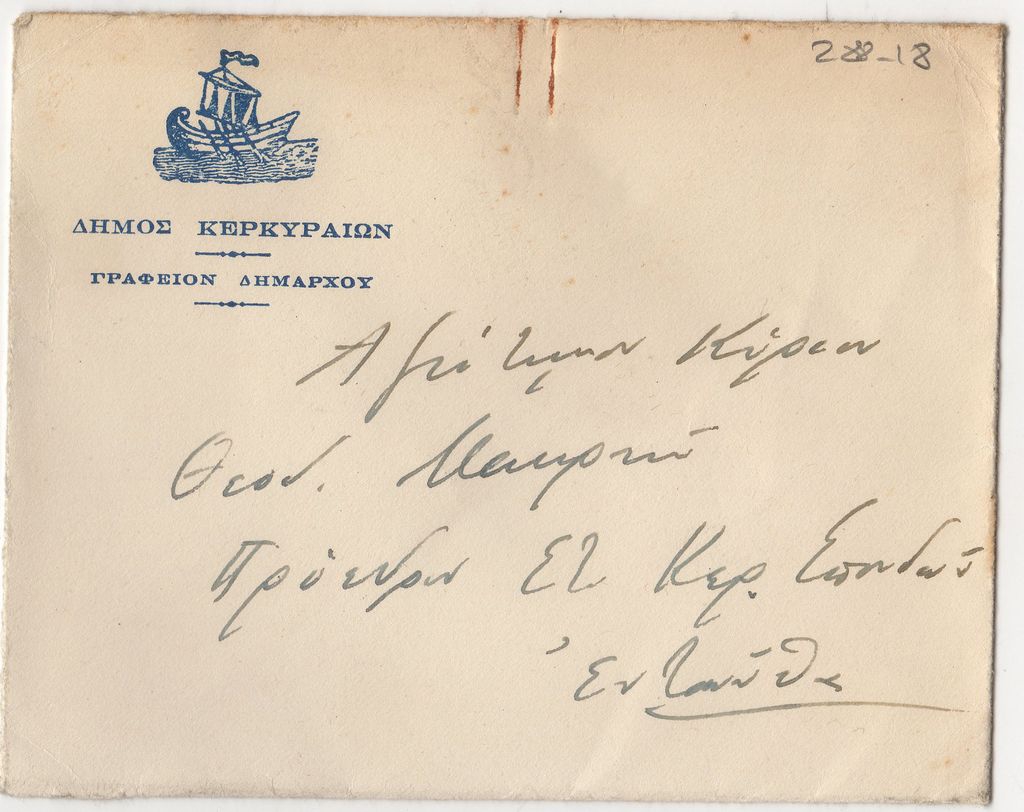 288-18
ΔΗΜΟΣ ΚΕΡΚΥΡΑΙΩΝ
ΓΡΑΦΕΙΟΝ ΔΗΜΑΡΧΟΥ
Αξιότιμον Κύριον
Θεοδ. Μακρήν
Πρόεδρον Ετ Κερ. Σπουδών
Ἐνταύθα